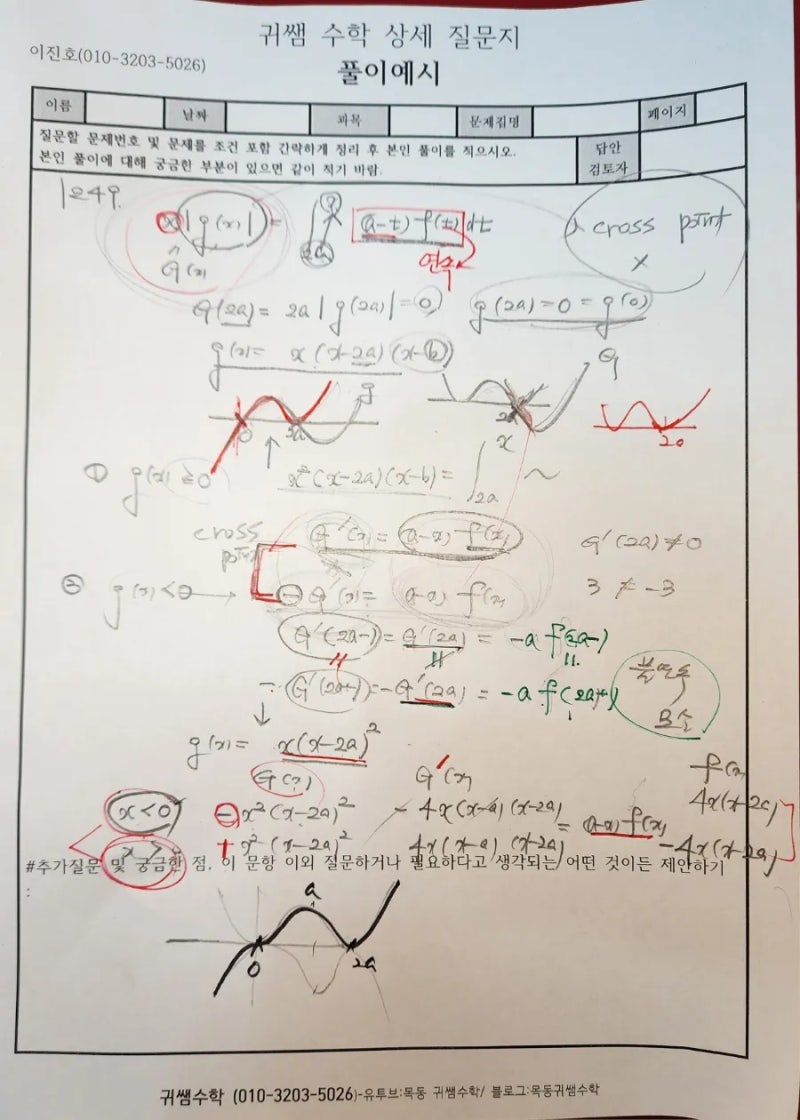 귀쌤 수학 상세 질문지
이진호(010-3203-5026)
풀이예시
이름 날짜 과목 문제집명 페이지
질문할 문제번호 및 문제를 조건 포함 간략하게 정리 후 본인 풀이를 적으시오.
본인 풀이에 대해 궁금한 부분이 있으면 같이 적기 바람.
답안
검토자
1249.
x|g(x)| = ∫ 2a x (a-t) f(t) dt
cross point
x
G(x)
연속
G(2a) = 2a|g(2a)| = 0 g(2a) = 0 = g(0)
g(x) = x(x-2a)(x-b)
g G
0 2a 2a 2a
x
① g(x) ≥ 0 x²(x-2a)(x-b) = ∫ 2a ~
cross point
G'(x) = (a-x) f(x) G'(2a) ≠ 0
② g(x) < 0 → - G'(x) = (a-x) f(x) 3 ≠ -3
G'(2a-) = G'(2a) = -a f(2a-)
- G'(2a+) = - G'(2a) = -a f(2a+)
불연속
모순
g(x) = x(x-2a)²
G(x) G'(x) f(x)
x<0 - x²(x-2a)² - 4x(x-a)(x-2a) 4x(x-2a)
x> + x²(x-2a)² 4x(x-a)(x-2a) = (a-x) f(x) -4x(x-2a)
#추가질문 및 궁금한 점. 이 문항 이외 질문하거나 필요하다고 생각되는 어떤 것이든 제안하기
:
a
0 2a
귀쌤수학 (010-3203-5026)-유투브:목동 귀쌤수학/ 블로그:목동귀쌤수학